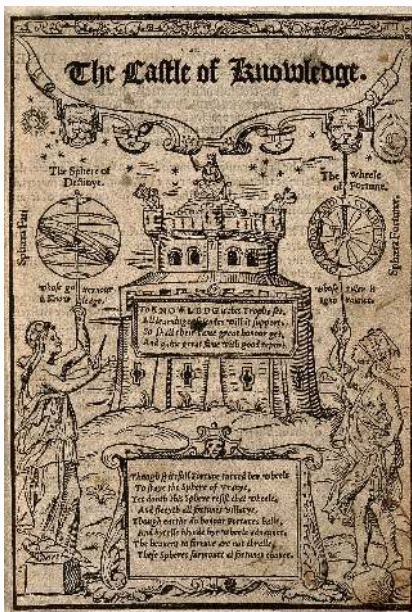 The Castle of Knowledge.
The Sphere of
Destinye.
The wheele
of Fortune.
Sphæra Fati
Sphæra Fortunæ
whose go vernour
is Know ledge.
whose ruler is
Ignoraunce.
To KNOWLEDGE is this Trophy set,
All learnings friendes will it support,
So shall their name great honour get,
And gaine great fame with good report.
Though spitefull Fortune turned her wheele
To staye the Sphere of Vranye,
Yet dooth this Sphere resist that wheele,
And fleeyth all fortunes villanye.
Though earthe do honour Fortunes balle,
And bytells blynde hyr wheele aduaunce,
The heauens to fortune are not thralle,
These Spheres surmount al fortunes chance.